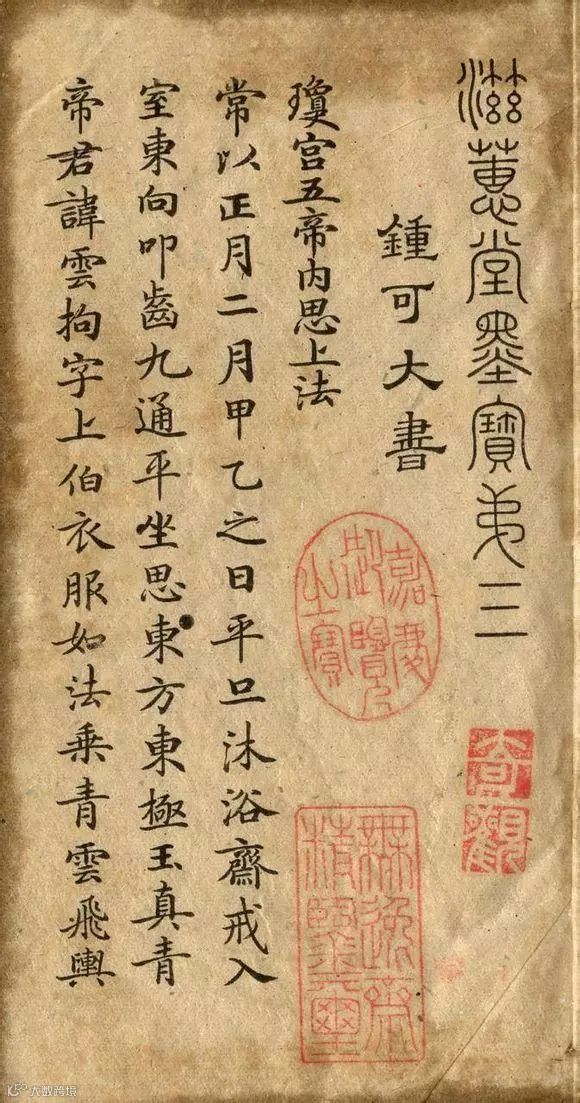 滋蕙堂墨寶弟三
鍾可大書
瓊宮五帝內思上法
常以正月二月甲乙之日平旦沐浴齋戒入
室東向叩齒九通平坐思東方東極玉真青
帝君諱雲拘字上伯衣服如法乗青雲飛輿
嘉慶御覽之寶
奇觀
無逸齋精鑒璽
大数跨境